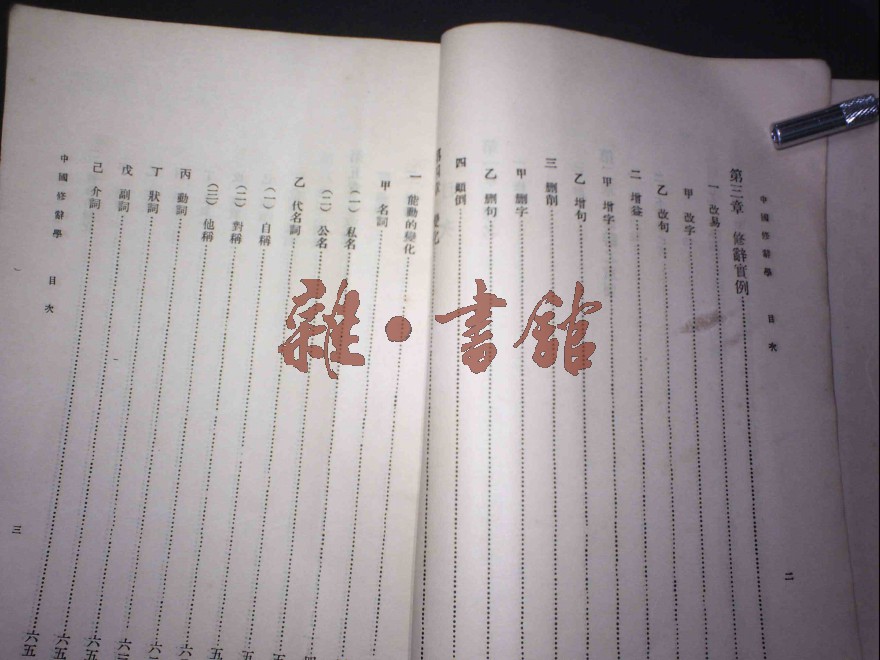 中國修辭學 目次
二
第三章 修辭實例
一 改易
甲 改字
乙 改句
二 增益
甲 增字
乙 增句
三 刪削
甲 刪字
乙 刪句
四 顛倒
一 能動的變化
甲 名詞
（一）私名
（二）公名
乙 代名詞
（一）自稱
（二）對稱
（三）他稱
丙 動詞
丁 狀詞
戊 副詞
己 介詞
中國修辭學 目次
三
雜·書館